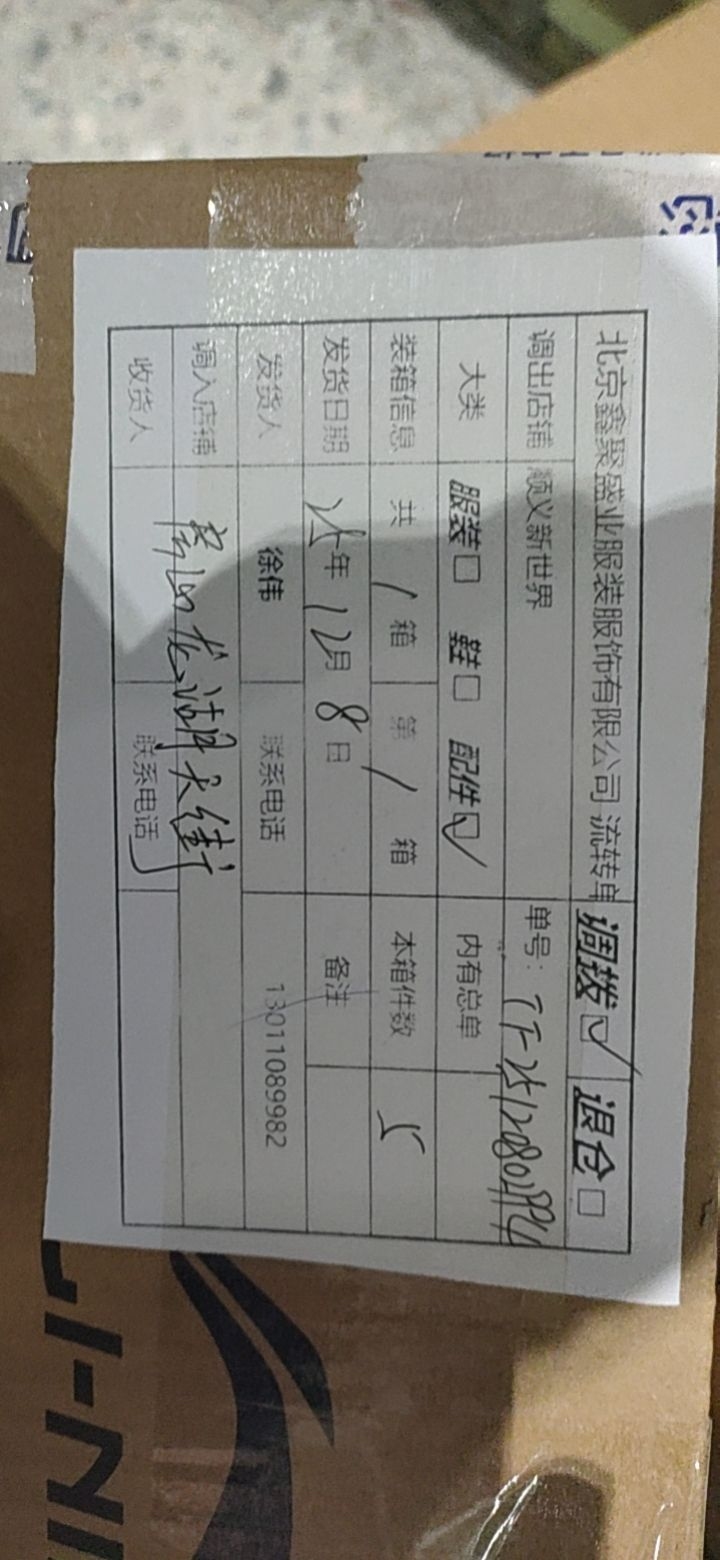 北京鑫聚盛业服装服饰有限公司 流转单 调拨☑ 退仓□
调出店铺 顺义新世界 单号:
大类 服装□ 鞋□ 配件☑ 内有总单
装箱信息 共 1 箱 第 1 箱 本箱件数 5
发货日期 25年12月8日 备注
发货人 徐伟 联系电话 13011089982
调入店铺 房山龙湖天街
收货人 联系电话